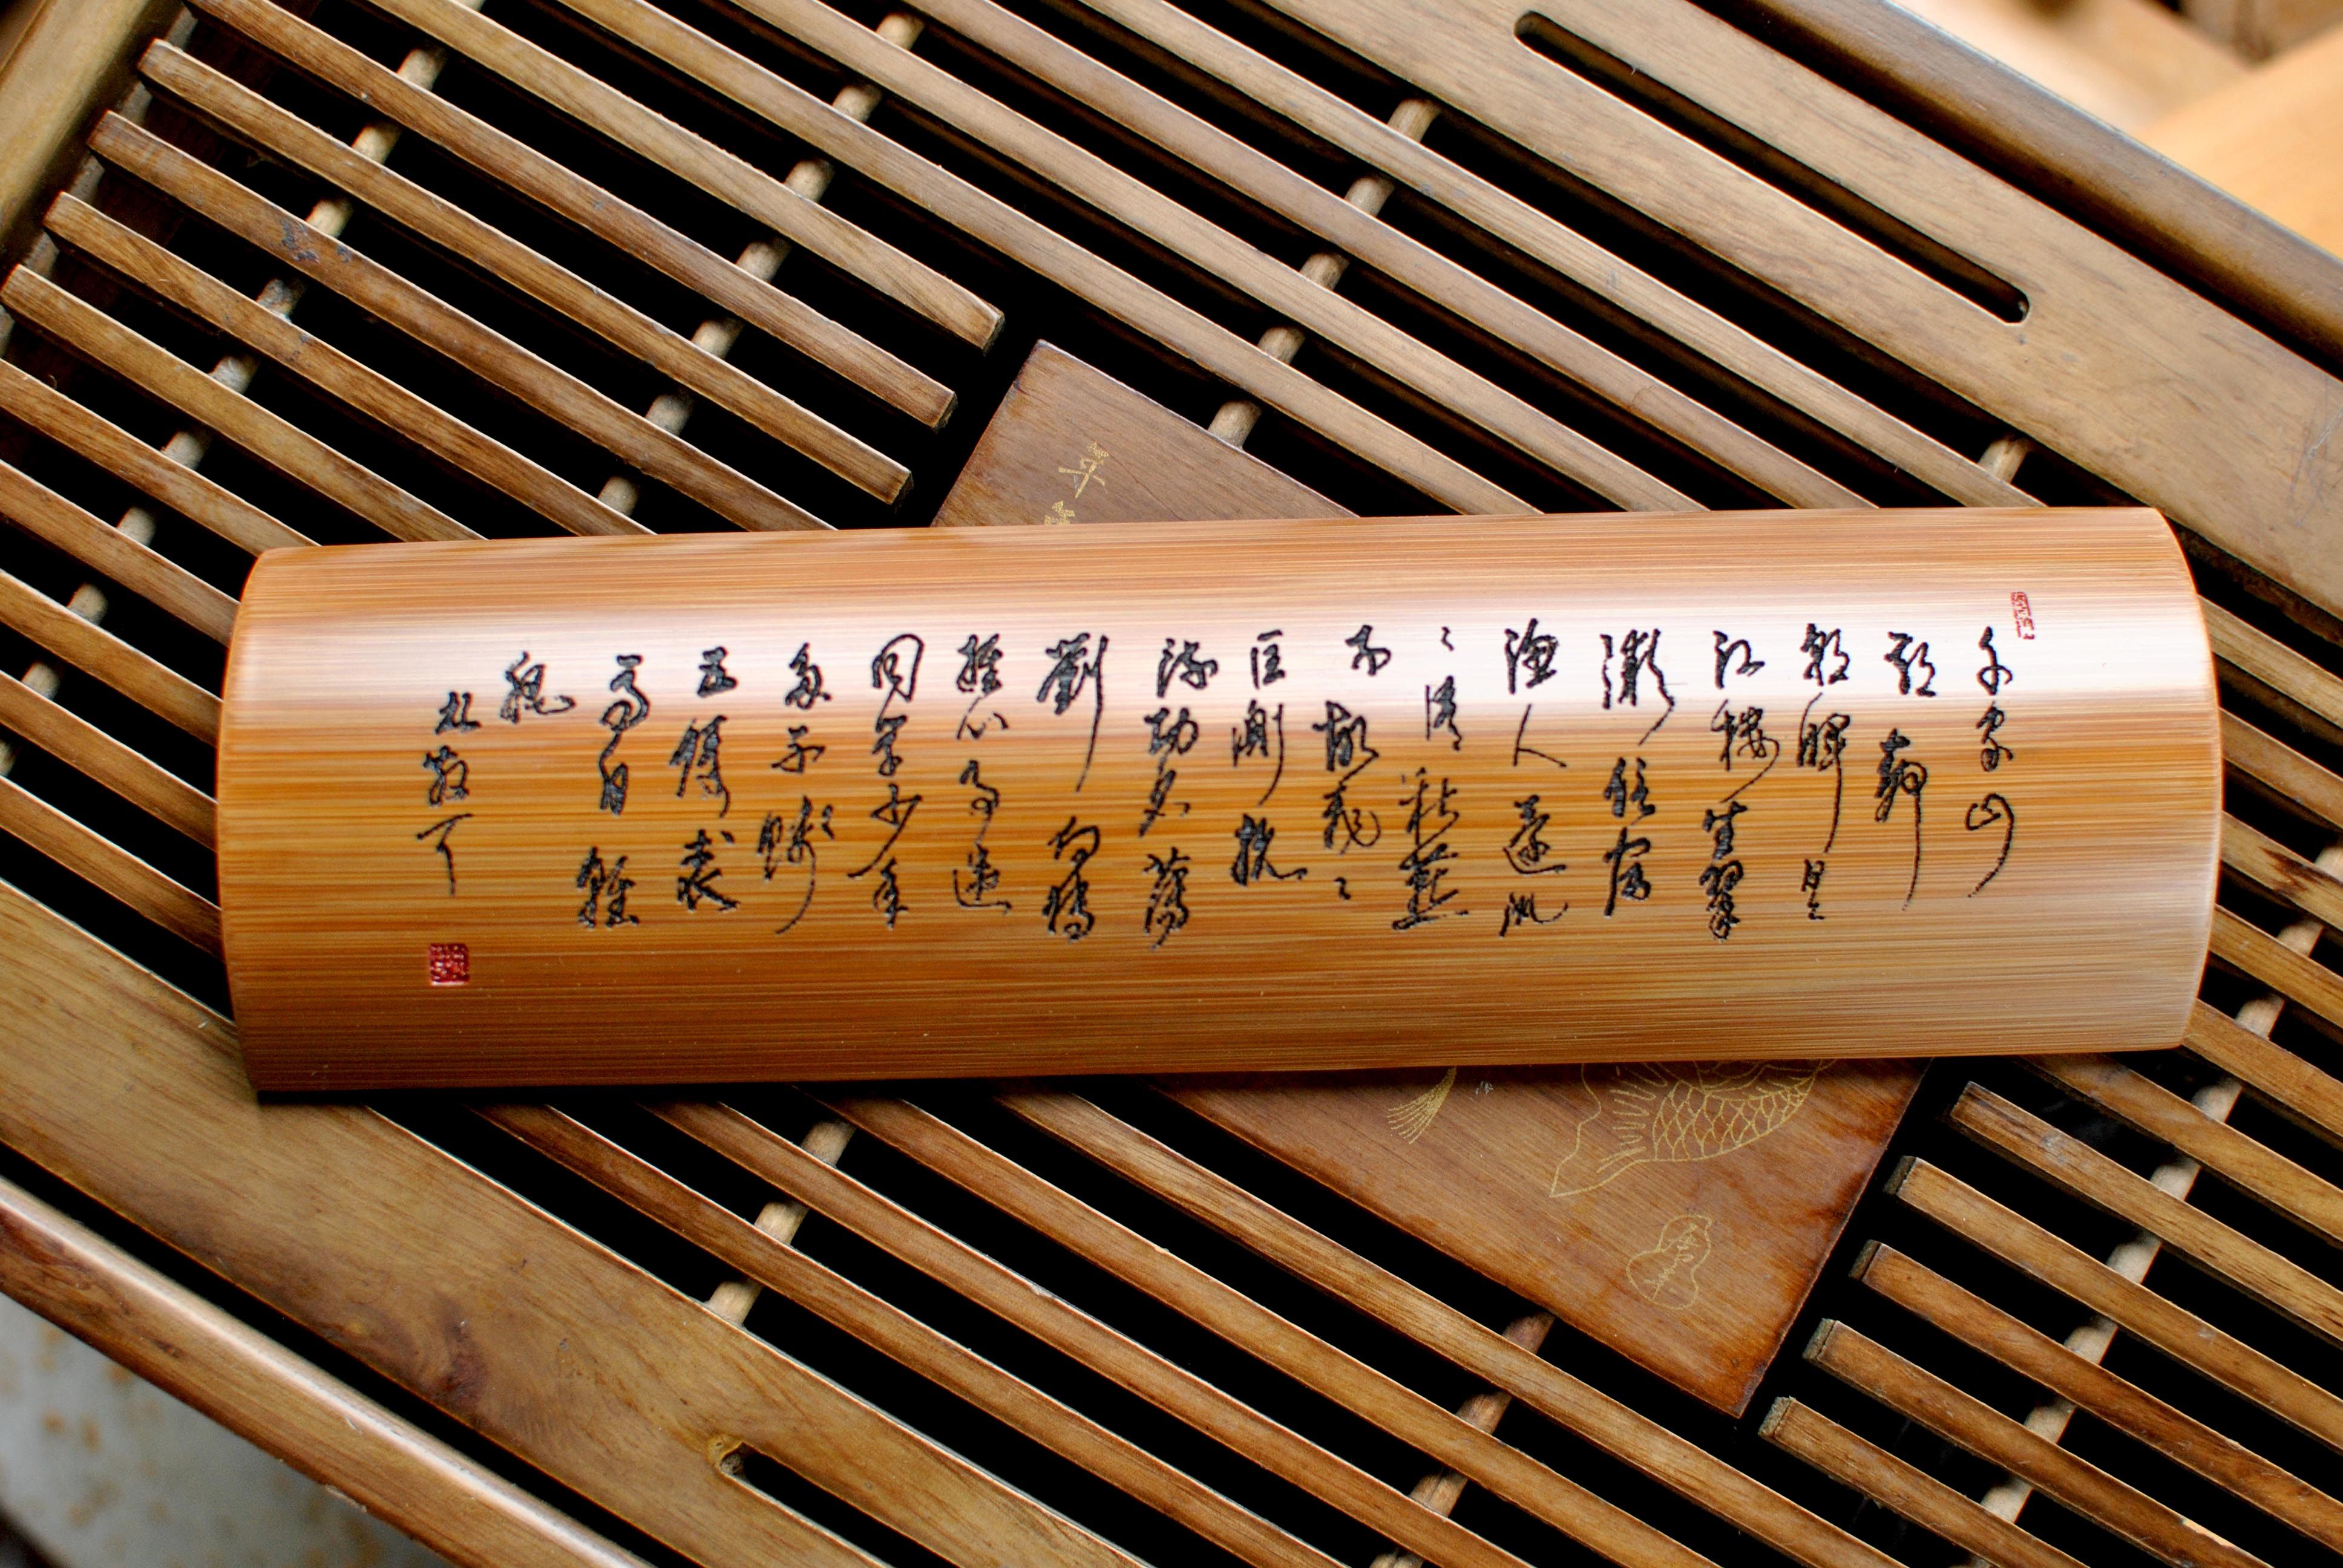 千家山
郭靜
朝暉日〻
江樓坐翠
微信宿
漁人還汎
〻清秋燕
子故飛〻
匡衡抗
疏功名薄
劉向傳
經心事違
同學少年
多不賤
五陵裘
馬自輕
肥